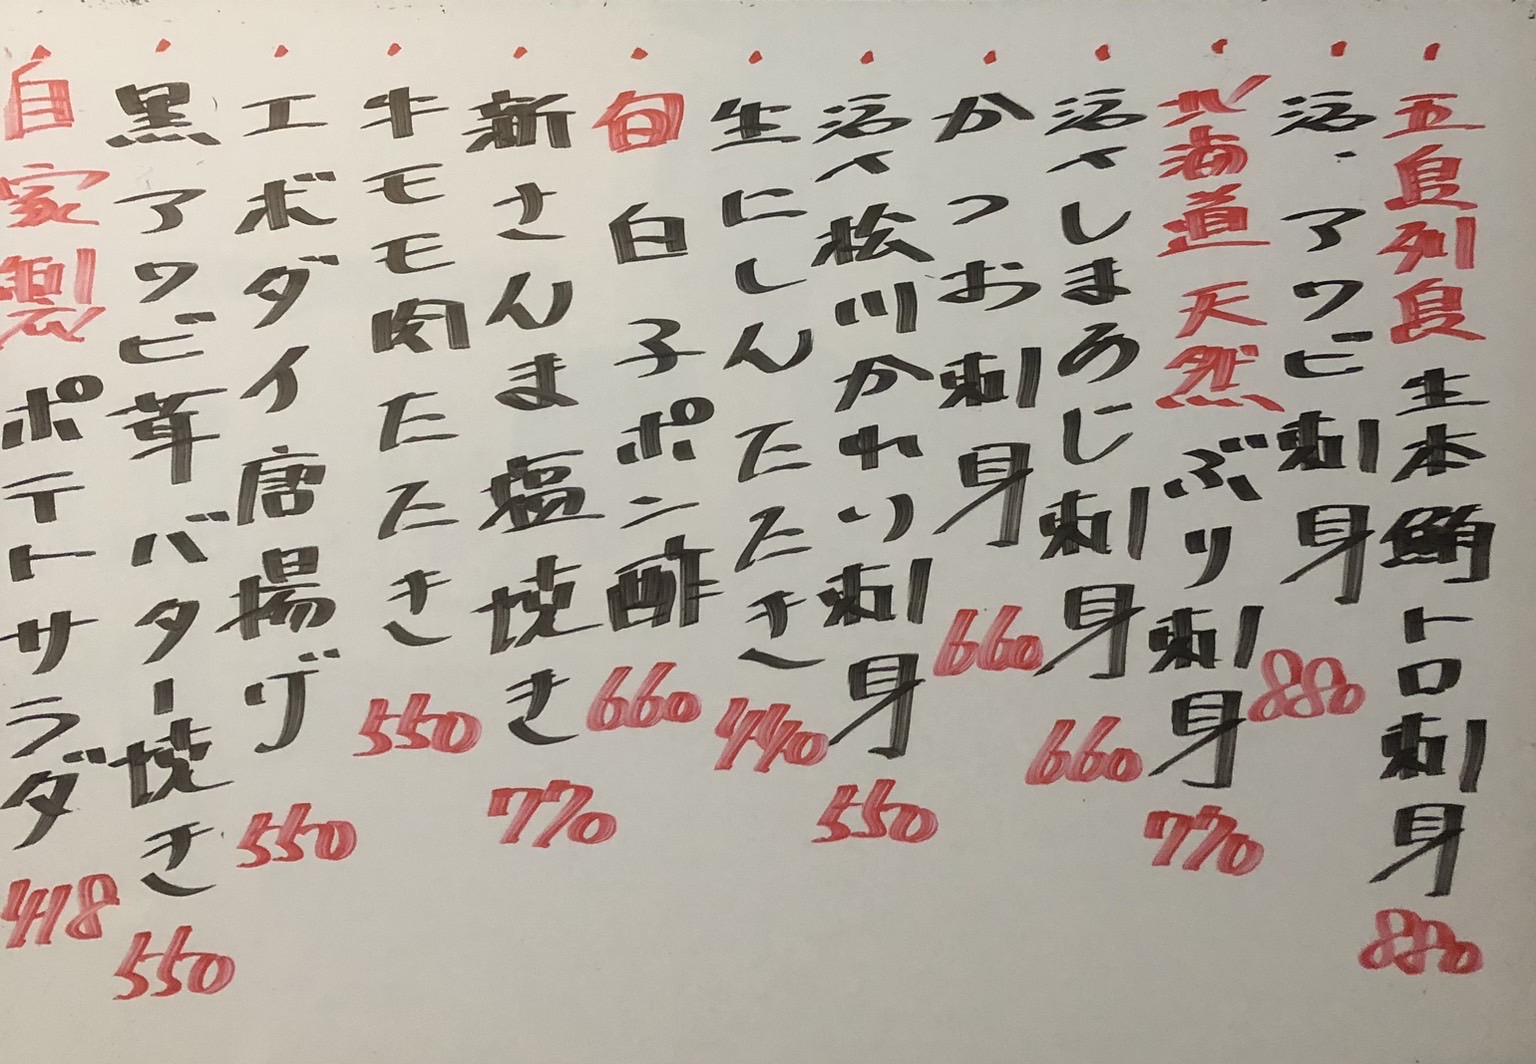 ・五島列島生本鮪トロ刺身 880
・活〆アワビ刺身 880
・北海道天然ぶり刺身 770
・活〆しまあじ刺身 660
・かつお刺身 660
・活〆松川かれい刺身 550
・生にしんたたき 440
・旬白子ポン酢 660
・新さんま塩焼き 770
・牛モモ肉たたき 550
・エボダイ唐揚げ 550
・黒アワビ茸バター焼き 550
・自家製ポテトサラダ 418